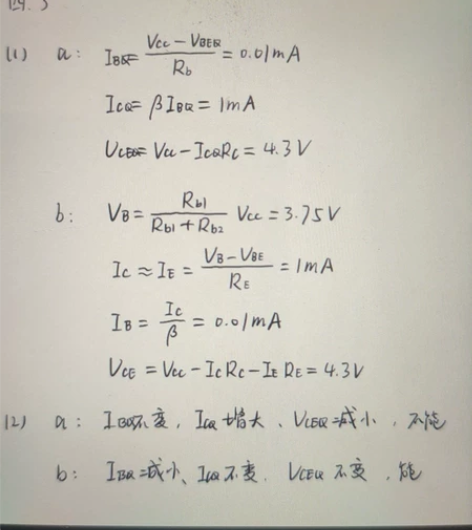 (1) a: I_BQ = (V_CC - V_BEQ) / R_b = 0.01mA
I_CQ = βI_BQ = 1mA
U_CEQ = V_CC - I_CQ R_C = 4.3V
b: V_B = R_b1 / (R_b1 + R_b2) V_CC = 3.75V
I_C ≈ I_E = (V_B - V_BE) / R_E = 1mA
I_B = I_C / β = 0.01mA
U_CE = V_CC - I_C R_C - I_E R_E = 4.3V
(2) a: I_BQ不变, I_CQ 增大、V_CEQ减小, 不能
b: I_BQ减小、I_CQ不变. V_CEQ 不变, 能